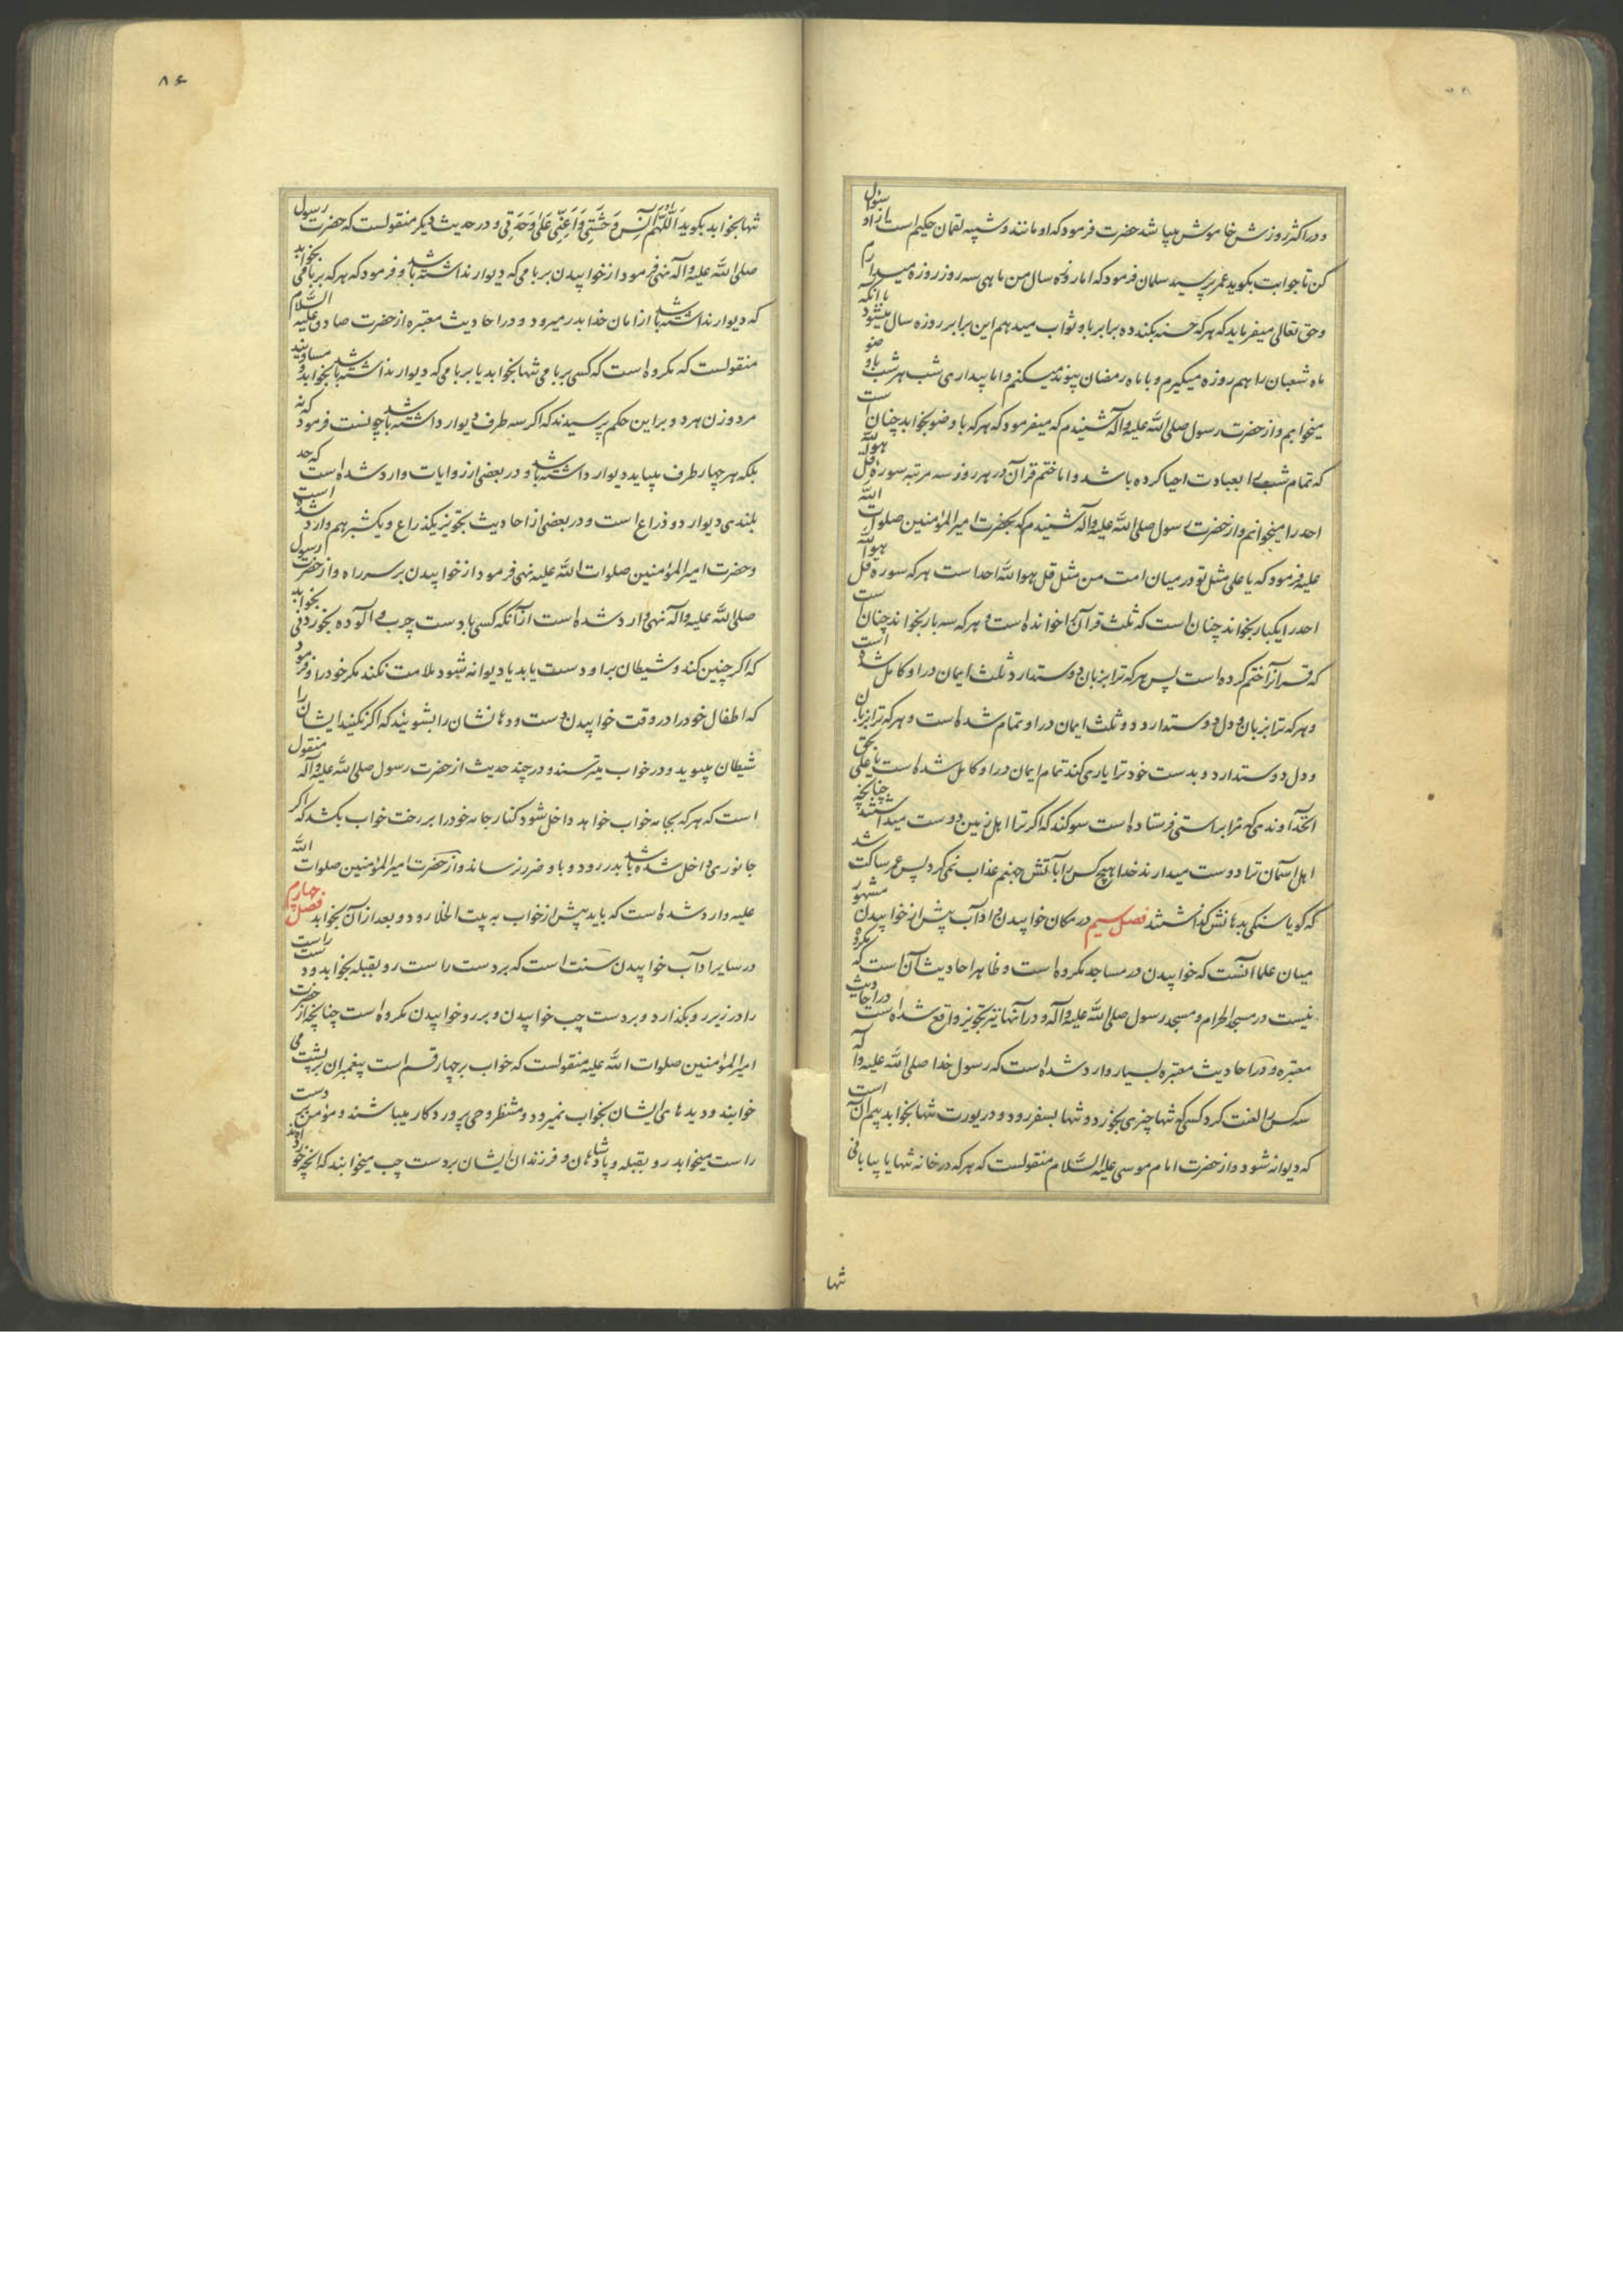 و در اکثر روزش خاموش میباشد حضرت فرمود که او مانند و شبیه لقمان حکیم است از او رسول
کن تا جوابت بگوید عمر پرسید سلمان فرمود که اما روزه سال من ماهی سه روز روزه میدارم
و حق تعالی میفرماید که هر که حسنه بکند ده برابر باو ثواب میدهم این برابر روزه سال میشود با آنکه
ماه شعبان را هم روزه میگیرم و با ماه رمضان پیوند میکنم و اما بیداری شب هر شب باوضو
میخوابم و از حضرت رسول صلی الله علیه وآله شنیدم که میفرمود که هر که با وضو بخوابد چنان است
که تمام شب را بعبادت احیا کرده باشد و اما ختم قرآن در هر روز سه مرتبه سوره قل هو الله
احد را میخوانم و از حضرت رسول صلی الله علیه وآله شنیدم که بحضرت امیرالمؤمنین صلوات الله
علیه فرمود که یا علی مثل تو در میان امت من مثل قل هو الله احد است هر که سوره قل هو الله
احد را یکبار بخواند چنان است که ثلث قرآن را خوانده است و هر که سه بار بخواند چنان است
که قرآن را ختم کرده است پس هر که ترا بزبان دوستدارد ثلث ایمان در او کامل شده است
و هر که ترا بزبان و دل دوستدارد دو ثلث ایمان در او تمام شده است و هر که ترا بزبان
و دل دوستدارد و بدست خود ترا یاری کند تمام ایمان در او کامل شده است یا علی بحق
آنخداوندی که مرا براستی فرستاده است سوکند که اکر ترا اهل زمین دوست میداشتند چنانچه
اهل آسمان ترا دوست میدارند خدا هیچ کس را بآتش جهنم عذاب نمی کرد پس عمر ساکت شد
که کویا سنکی بدهانش کذاشتند فصل سیم در مکان خوابیدن و آداب پیش از خوابیدن مشهور
میان علما آنست که خوابیدن در مساجد مکروه است و ظاهر احادیث آن است که مکروه
نیست در مسجد الحرام و مسجد رسول صلی الله علیه وآله و در آنها نیز تجویز واقع شده است در احادیث
معتبره و در احادیث معتبره بسیار وارد شده است که رسول خدا صلی الله علیه وآله
سه کس را لعنت کرد کسی که تنها چیزی بخورد و تنها بسفر رود و در بورت تنها بخوابد بیم آن است
که دیوانه شود و از حضرت امام موسی علیه السلام منقولست که هر که در خانه تنها یا بیابانی
تنها
۸۶
تنها بخوابد بکوید اَللّهُمَّ آنِس وَحشَتِی وَاَعِنّی عَلی وَحدَتی و در حدیث دیکر منقولست که حضرت رسول
صلی الله علیه وآله نهی فرمود از خوابیدن بر بامی که دیوار نداشته باشد و فرمود که هر که بر بامی بخوابد
که دیوار نداشته باشد از امان خدا بدر میرود و در احادیث معتبره از حضرت صادق علیه السلام
منقولست که مکروه است که کسی بر بامی تنها بخوابد یا بر بامی که دیوار نداشته باشد بخوابد و مساویند
مرد و زن هر دو بر این حکم پرسیدند که اکر سه طرف دیوار داشته باشد چونست فرمود که نه
بلکه هر چهار طرف میباید دیوار داشته باشد و در بعضی از روایات وارد شده است که حد
بلندی دیوار دو ذراع است و در بعضی از احادیث تجویز یکذراع و یکشبر هم وارد شده است
و حضرت امیرالمؤمنین صلوات الله علیه نهی فرمود از خوابیدن بر سر راه و از حضرت رسول
صلی الله علیه وآله نهی وارد شده است از آنکه کسی با دست چرب و آلوده بخوردنی بخوابد
که اکر چنین کند و شیطان بر او دست یابد یا دیوانه شود ملامت نکند مکر خود را و فرمود
که اطفال خود را در وقت خوابیدن دست و دهانشان را بشوئید که اکر نکنید ایشان را
شیطان میبوید و در خواب میترسند و در چند حدیث از حضرت رسول صلی الله علیه وآله منقول
است که هر که بجامه خواب خواهد داخل شود کنار جامه خود را بر رخت خواب بکشد که اکر
جانوری داخل شده باشد بدر رود و باو ضرر نرساند و از حضرت امیرالمؤمنین صلوات الله
علیه وارد شده است که باید پیش از خواب به بیت الخلا رود و بعد از آن بخوابد فصل چهارم
در سایر آداب خوابیدن سنت است که بر دست راست رو بقبله بخوابد و دست راست
را در زیر رو بکذارد و بر دست چپ خوابیدن و بر رو خوابیدن مکروه است چنانچه از حضرت
امیرالمؤمنین صلوات الله علیه منقولست که خواب بر چهار قسم است پیغمبران بر پشت می
خوابند و دیدهای ایشان بخواب نمیرود و منتظر وحی پروردکار میباشند و مؤمن بر دست
راست میخوابد رو بقبله و پادشاهان و فرزندان ایشان بر دست چپ میخوابند که آنچه خورده اند